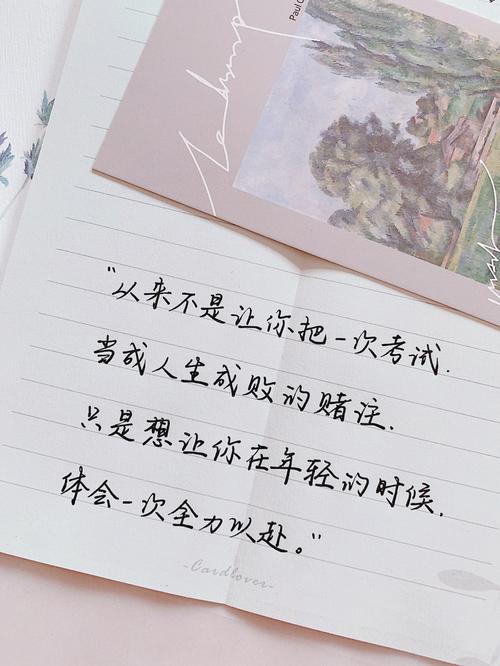 Paul C
“从来不是让你把一次考试.
当成人生成败的赌注.
只是想让你在年轻的时候.
体会一次全力以赴。”
-Cardlover-